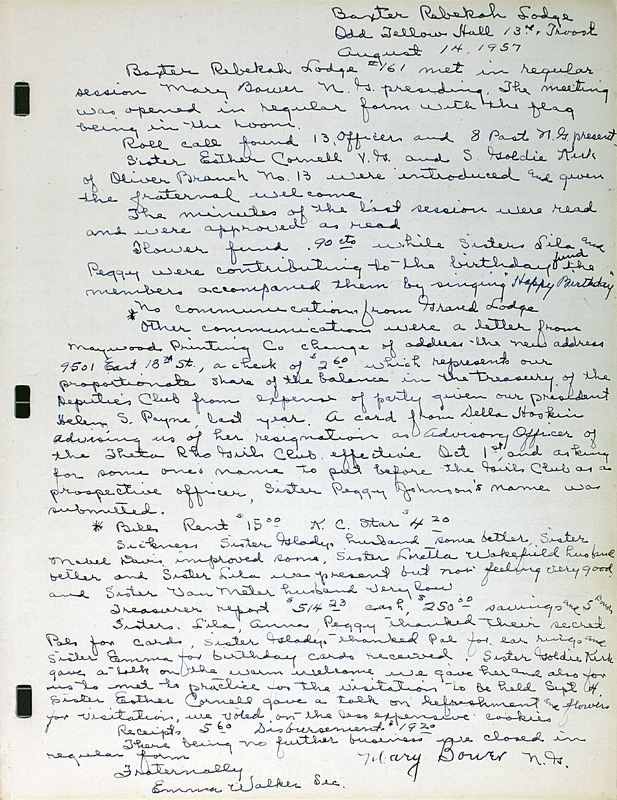 Baxter Rebekah Lodge
Odd Fellow Hall 13th, Troost
August 14, 1957
Baxter Rebekah Lodge #161 met in regular
session Mary Bower N. G. presiding. The meeting
was opened in regular form with the flag
being in the room.
Roll call found 13, Officers and 8 Past N. Gs present
Sister Esther Cornell V. G. and S. Goldie Kirk
of Oliver Branch No. 13 were introduced and given
the fraternal welcome.
The minutes of the last session were read
and were approved as read
Flower fund .90 cts while Sisters Lila and
Peggy were contributing to the birthday fund the
members accompaned them by singing "Happy Birthday"
* No communications from Grand Lodge
Other communication were a letter from
Maywood Printing Co change of address the new address
9501 East 13th St., a check of $2.60 which represents our
proportionate share of the balance in the treasury of the
Deputie's Club from expense of party given our president
Helen S. Payne, last year. A card from Della Hoskin
advising us of her resignation as Advisory Officer of
the Theta Rho Girls Club, effective Oct 1st and asking
for some one's name to put before the Girls Club as a
prospective officer, Sister Peggy Johnson's name was
submitted.
* Bills Rent $15.00 K. C. Star $4.20
Sickness Sister Gladys husband some better, Sister
Mabel Davis improved some, Sister Loretta Wakefield husband
better and Sister Lila was present but not feeling very good
and Sister Van Meter husband very low.
Treasurer report $514.23 cash, $250.00 savings and 5 Bonds
Sisters. Lila, Anna, Peggy thanked their secret
Pals for cards, Sister Gladys thanked Pal for ear rings and
Sister Emma for birthday cards received. Sister Goldie Kirk
gave a talk on the warm welcome we gave her and also for
us to met to practice for the visitation to be held Sept 4.
Sister Esther Cornell gave a talk on refreshment & flowers
for visitation, we voted on the less expensive cookies
Receipts 5.60 Disbursement $19.20
There being no further business we closed in
regular form
Mary Bower N. G.
Fraternally
Emma Walker Sec.